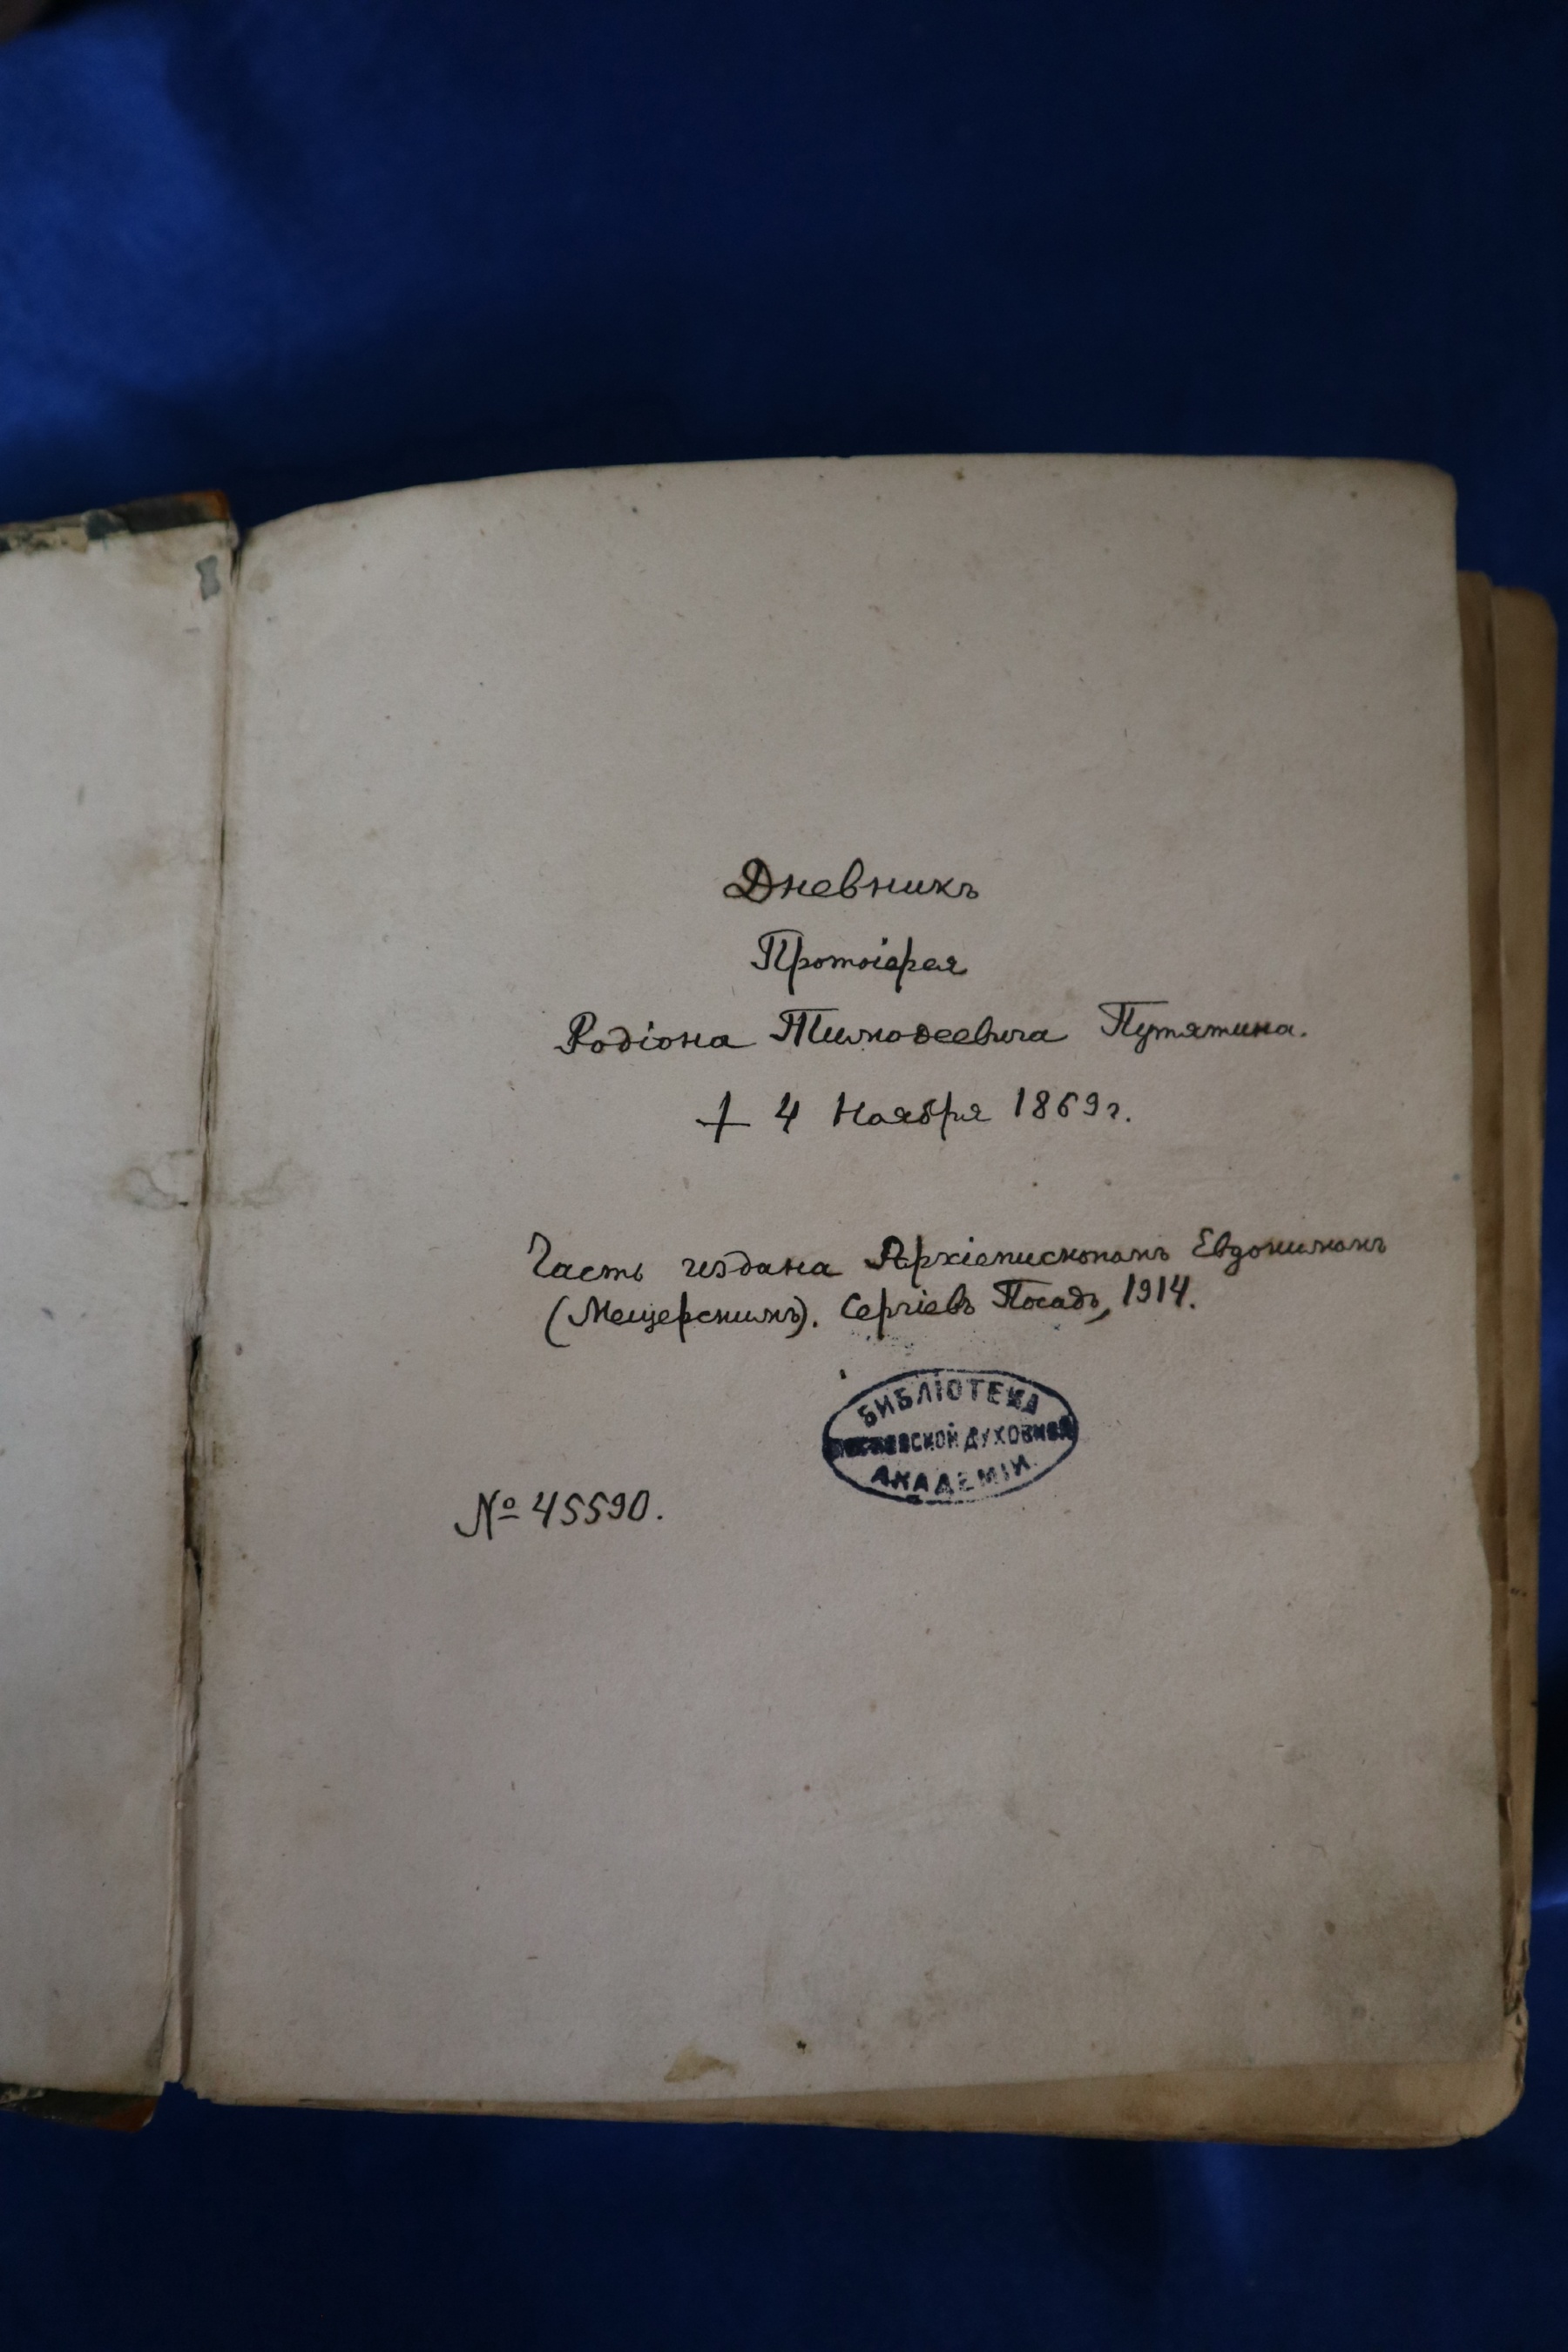 Дневникъ
Протоіерея
Родіона Тимоѳеевича Путятина.
† 4 Ноября 1869 г.
Часть издана Архіепископомъ Евдокимомъ
(Мещерскимъ). Сергіевъ Посадъ, 1914.
БИБЛІОТЕКА
МОСКОВСКОЙ ДУХОВНОЙ
АКАДЕМІИ
№ 45590.